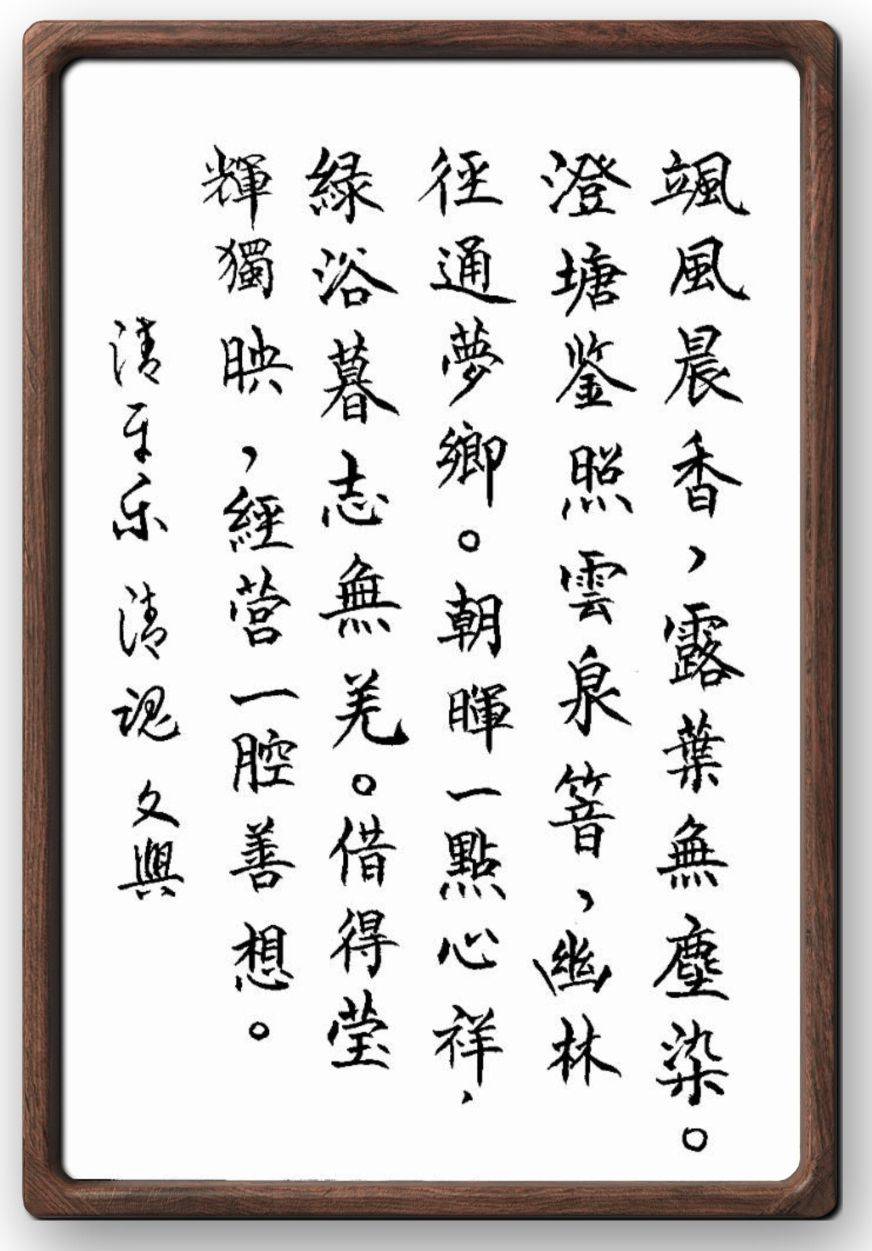 颯風晨香，露葉無塵染。
澄塘鉴照雲泉箁，幽林
徑通夢鄉。朝暉一點心祥，
緑浴暮志無羌。借得莹
輝獨映，經营一腔善想。
清平乐 清魂 文興